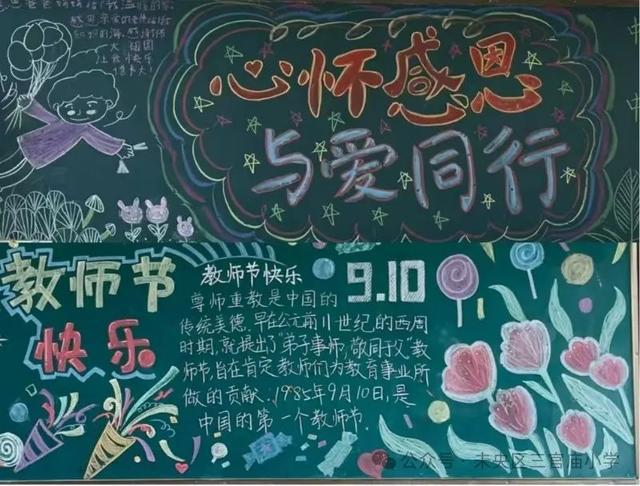 感恩亲爱的老师给我
知识的海,感谢伟
大祖国
让我快乐
心怀感恩
与爱同行
教师节
快乐
教师节快乐
9.10
尊师重教是中国的
传统美德。早在公元前11世纪的西周
时期,就提出了“弟子事师,敬同于父”教
师节,旨在肯定教师们为教育事业所
做的贡献。1985年9月10日,是
中国的第一个教师节.
公众号 未央区三官庙小学